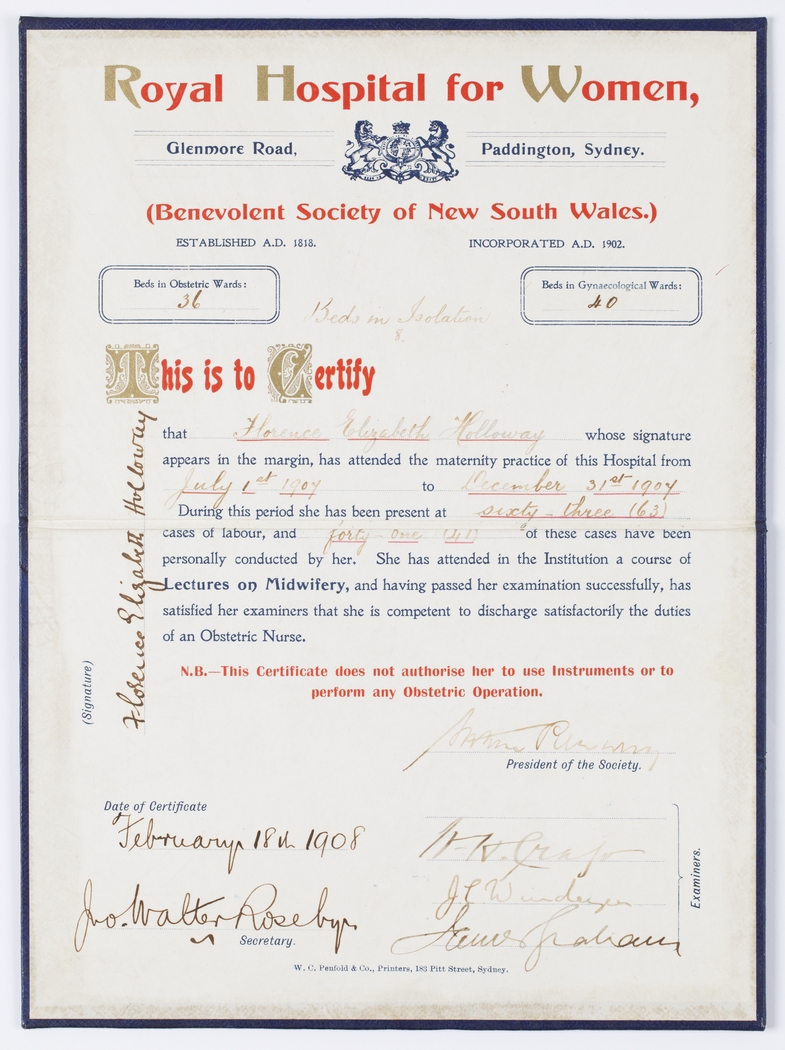 Royal Hospital for Women,
Glenmore Road, Paddington, Sydney.
(Benevolent Society of New South Wales.)
ESTABLISHED A.D. 1818. INCORPORATED A.D. 1902.
Beds in Obstetric Wards: Beds in Gynaecological Wards:
36 40
Beds in Isolation
8.
This is to Certify
that Florence Elizabeth Holloway whose signature
appears in the margin, has attended the maternity practice of this Hospital from
July 1st 1907 to December 31st 1907
During this period she has been present at sixty-three (63)
cases of labour, and forty-one (41) of these cases have been
personally conducted by her. She has attended in the Institution a course of
Lectures on Midwifery, and having passed her examination successfully, has
satisfied her examiners that she is competent to discharge satisfactorily the duties
of an Obstetric Nurse.
(Signature) Florence Elizabeth Holloway
N.B.—This Certificate does not authorise her to use Instruments or to
perform any Obstetric Operation.
President of the Society.
Date of Certificate
February 18th 1908
Jno. Walter Roseby
Secretary.
J C Windeyer
James Graham
Examiners.
W. C. Penfold & Co., Printers, 183 Pitt Street, Sydney.